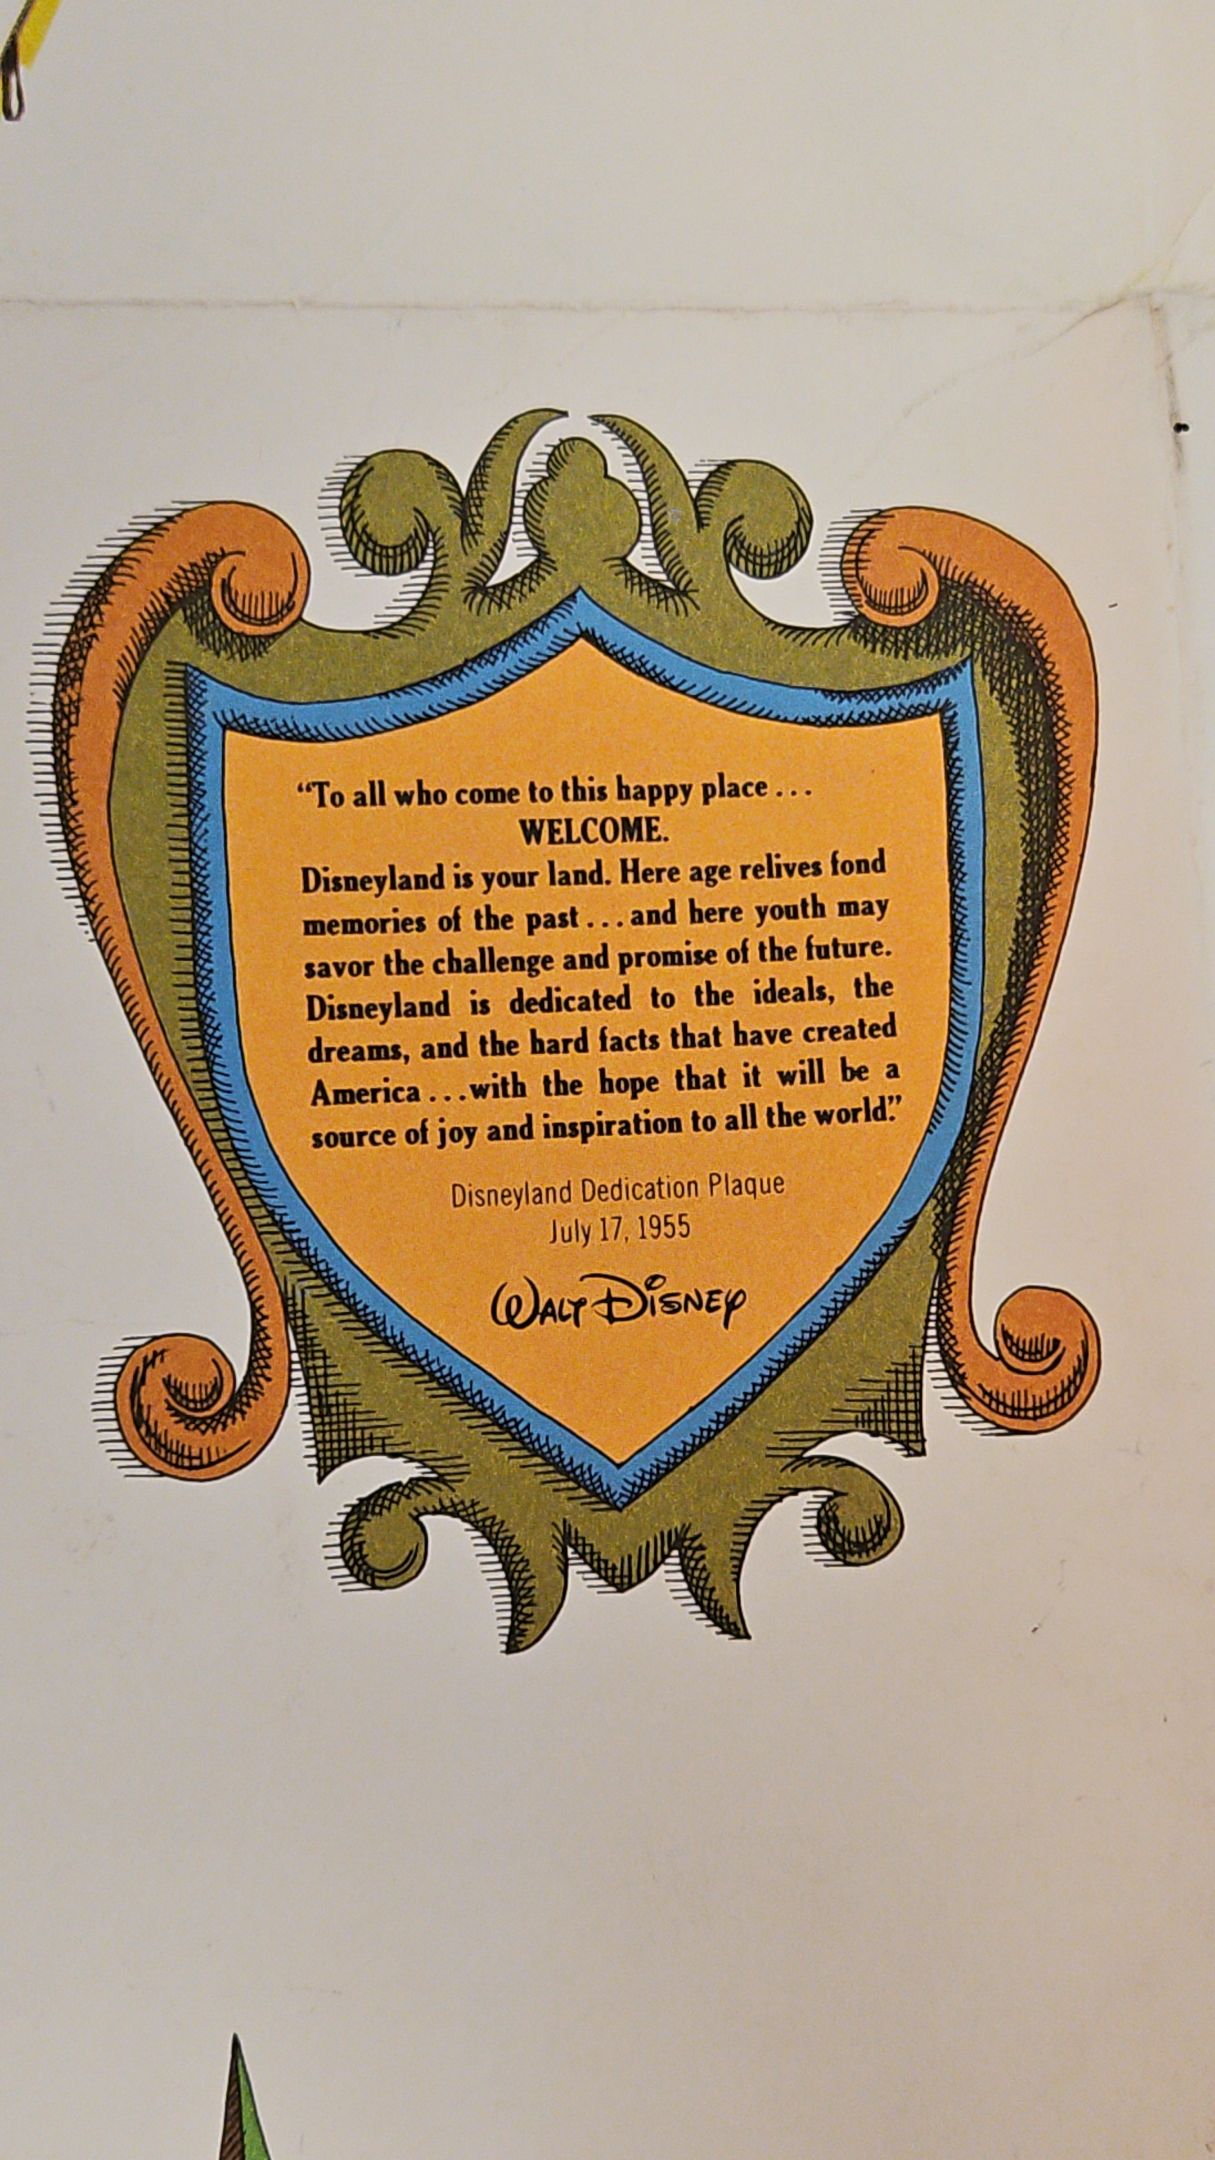 “To all who come to this happy place...
WELCOME.
Disneyland is your land. Here age relives fond
memories of the past...and here youth may
savor the challenge and promise of the future.
Disneyland is dedicated to the ideals, the
dreams, and the hard facts that have created
America...with the hope that it will be a
source of joy and inspiration to all the world.”
Disneyland Dedication Plaque
July 17, 1955
WALT DISNEY